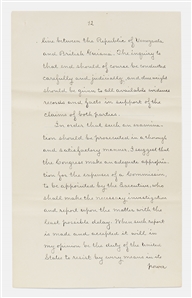 12
line between the Republic of Venezuela
and British Guiana. The inquiry to
that end should of course be conducted
carefully and judicially and due weight
should be given to all available evidence
records and facts in support of the
claims of both parties.
In order that such an examina-
tion should be prosecuted in a thorough
and satisfactory manner, I suggest that
the Congress make an adequate appropria-
tion for the expenses of a Commission,
to be appointed by the Executive, who
shall make the necessary investigation
and report upon the matter with the
least possible delay. When such report
is made and accepted it will in
my opinion be the duty of the United
States to resist by every means in its
power